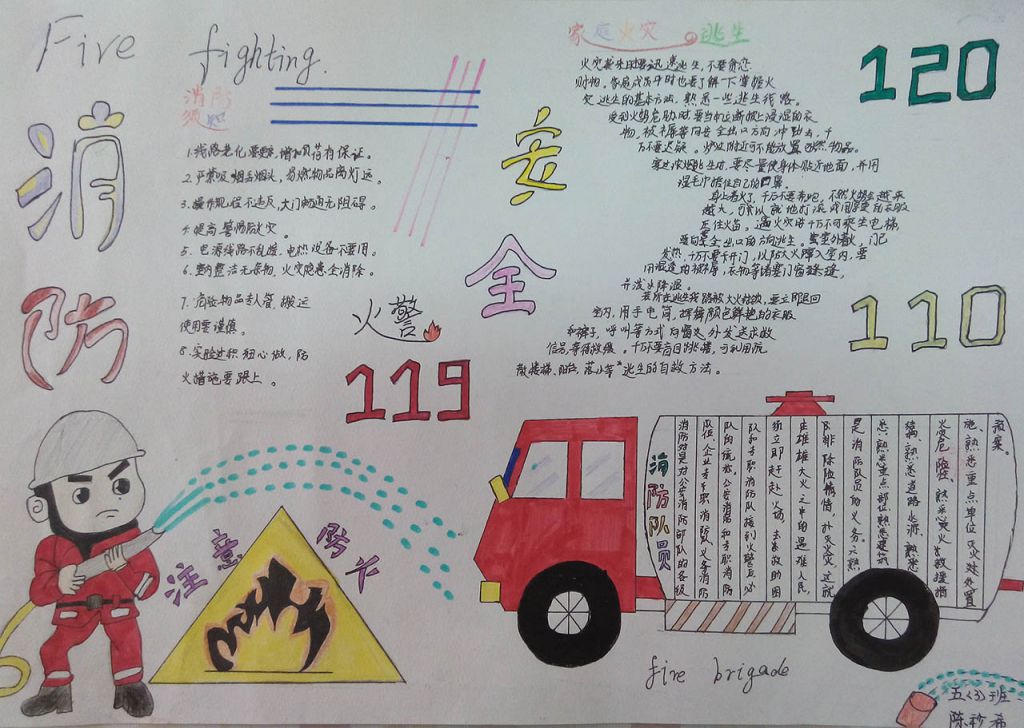 Fire fighting.
消防
安全
消防
须知
1.线路老化要更换，增加负荷有保证。
2.严禁吸烟丢烟头，易燃物品离灯远。
3.操作规程不违反，大门畅通无阻碍。
4.提高警惕防火灾。
5.电源线路不乱接，电热设备不要用。
6.室内整洁无杂物，火灾隐患全消除。
7.危险物品专人管，搬运
使用要谨慎。
8.实验过程细心做，防
火措施要跟上。
火警
119
家庭火灾逃生
火灾发生时要迅速逃生，不要贪恋
财物。家庭成员平时也要了解下掌握火
灾逃生的基本方法，熟悉一些逃生线路。
受到火势危胁时要当机立断披上浸湿的衣
物，被褥等向安全出口方向冲出去，千
万不要迟疑。
穿过浓烟逃生时，要尽量使身体贴近地面，并用
湿毛巾捂住自己的口鼻。
身上着火了，千万不要奔跑，
压住火苗。遇火灾时千万不可乘坐电梯，
要向安全出口的方向逃生。
发热，千万不要开门，以防大火蹿入室内，要
用浸湿的被褥，衣物等堵塞门窗缝隙，
并泼水降温。
若所在逃生线路被大火封锁，要立即退回
室内，用手电筒，挥舞颜色鲜艳的衣服
和裤子，呼叫等方式向窗外发送求救
信号，等待救援。千万不要盲目跳楼，可利用疏
散楼梯、阳台、落水管逃生的自救方法。
120
110
注意防火
消防队员
消防对是对公安消防部队的各级
队伍，企业专职消防队，义务消防
队的统称。公安消防和专职消防
队和专职消防队接到火警后必
须立即赶赴火场，去救助困
在雄雄大火之中的遇难人民，
排除险情，扑灭火灾，这就
是消防队员的义务。
悉，熟悉重点部位，熟悉建筑
熟悉道路水源，熟悉
火灾危险，熟悉灭火救援措
施，熟悉重点单位灭火处置
预案。
fire brigade
五〈3〉班